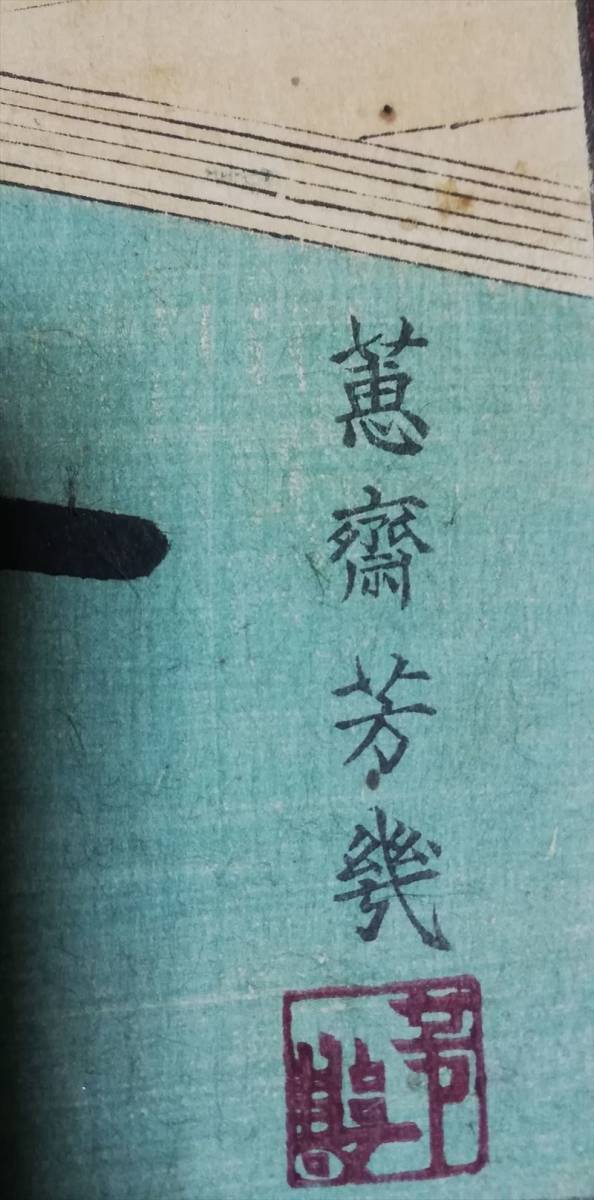 蕙齋芳幾